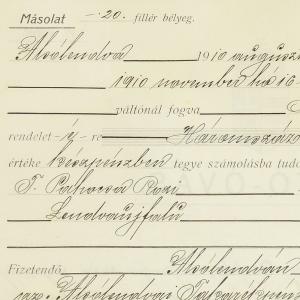 Másolat —20. fillér bélyeg.
Alsólendva 1910 august
1910 november hó 16
váltónál fogva
rendelet-é-re Háromszáz
értéke készpénzben tegye számolásba tud
T. Pahova Rozi
Lendvaujfalu
Fizetendő Alsólendván
Alsólendvai Takarék